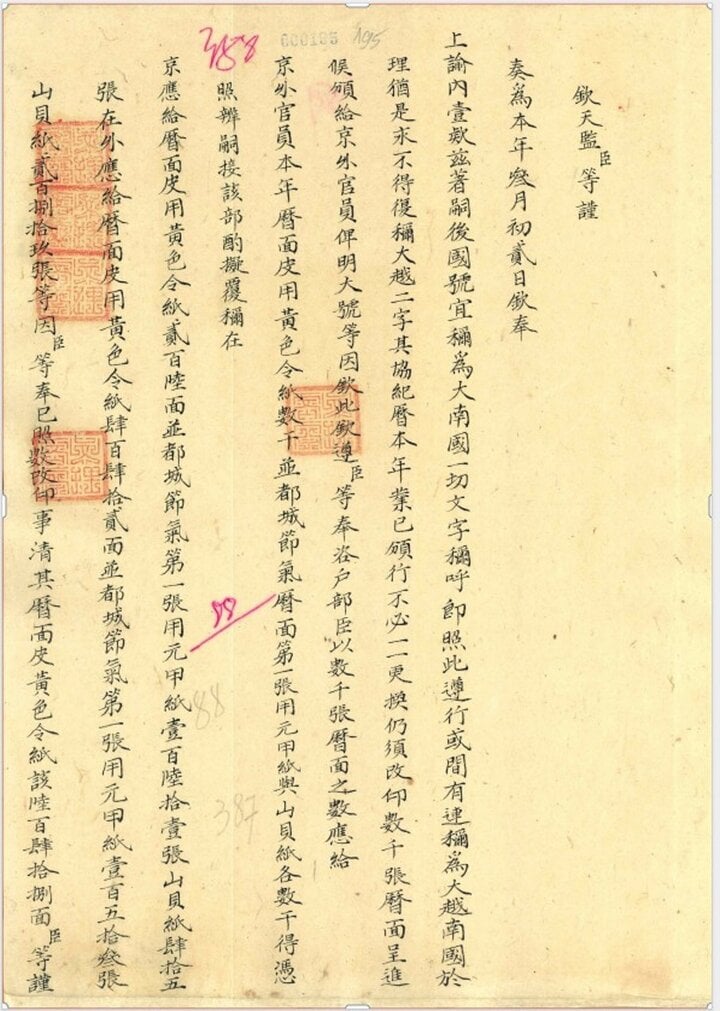 欽天監臣等謹
奏爲本年叄月初貳日欽奉
上諭內壹欵茲著嗣後國號宜稱爲大南國一切文字稱呼卽照此遵行或間有連稱爲大越南國於
理猶是永不得復稱大越二字其協紀曆本年業已頒行不必一一更換仍須改印數千張曆面呈進
候頒給京外官員俾明大號等因欽此欽遵臣等奉咨戶部臣以數千張曆面之數應給
京外官員本年曆面皮用黃色令紙數干並都城節氣曆面第一張用元甲紙與山貝紙各數干得憑
照辨嗣接該部酌擬覆稱在
京應給曆面皮用黃色令紙貳百陸面並都城節氣第一張用元甲紙壹百陸拾壹張山貝紙肆拾五
張在外應給曆面皮用黃色令紙肆百肆拾貳面並都城節氣第一張用元甲紙壹百五拾叄張
山貝紙貳百捌拾玖張等因臣等奉已照數改印事清其曆面皮黃色令紙該陸百肆拾捌面臣等謹
388
000195 195
88
88
387